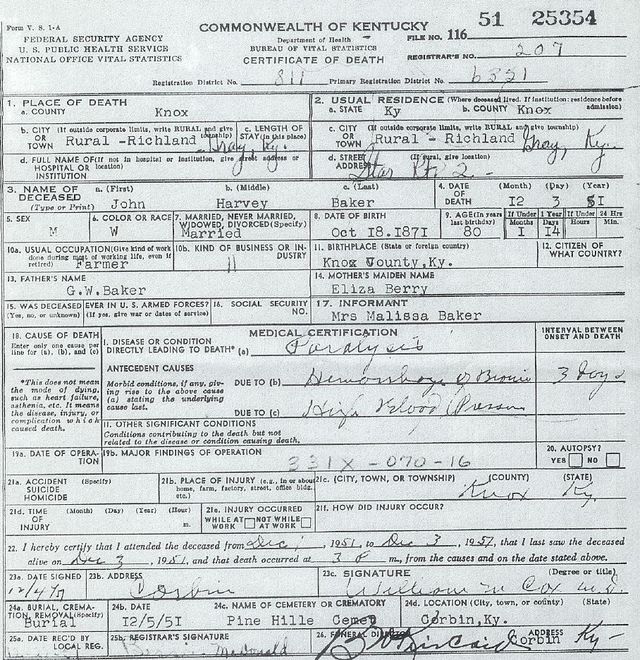 Form V. S. 1-A
FEDERAL SECURITY AGENCY
U. S. PUBLIC HEALTH SERVICE
NATIONAL OFFICE VITAL STATISTICS
COMMONWEALTH OF KENTUCKY
Department of Health
BUREAU OF VITAL STATISTICS
CERTIFICATE OF DEATH
FILE NO. 116 51 25354
REGISTRAR'S NO. 207
Registration District No. 811 Primary Registration District No. 6331
1. PLACE OF DEATH
a. COUNTY Knox
2. USUAL RESIDENCE (Where deceased lived. If institution: residence before admission)
a. STATE Ky b. COUNTY Knox
b. CITY (If outside corporate limits, write RURAL and give township) OR TOWN Rural -Richland Gray, Ky.
c. LENGTH OF STAY (in this place)
c. CITY (If outside corporate limits, write RURAL and give township) OR TOWN Rural - Richland Gray, Ky.
d. FULL NAME OF (If not in hospital or institution, give street address or location) HOSPITAL OR INSTITUTION
d. STREET ADDRESS (If rural, give location) Star Rt. 2-
3. NAME OF DECEASED (Type or Print)
a. (First) John
b. (Middle) Harvey
c. (Last) Baker
4. DATE OF DEATH (Month) (Day) (Year) 12 3 51
5. SEX M
6. COLOR OR RACE W
7. MARRIED, NEVER MARRIED, WIDOWED, DIVORCED (Specify) Married
8. DATE OF BIRTH Oct 18.1871
9. AGE (In years last birthday) 80
If Under 1 Year Months 1 Days 14
If Under 24 Hrs. Hours Min.
10a. USUAL OCCUPATION (Give kind of work done during most of working life, even if retired) Farmer
10b. KIND OF BUSINESS OR INDUSTRY "
11. BIRTHPLACE (State or foreign country) Knox County,Ky.
12. CITIZEN OF WHAT COUNTRY?
13. FATHER'S NAME G.W.Baker
14. MOTHER'S MAIDEN NAME Eliza Berry
15. WAS DECEASED EVER IN U. S. ARMED FORCES? (Yes, no, or unknown) (If yes, give war or dates of service)
16. SOCIAL SECURITY NO.
17. INFORMANT Mrs Malissa Baker
18. CAUSE OF DEATH
Enter only one cause per line for (a), (b), and (c)
*This does not mean the mode of dying, such as heart failure, asthenia, etc. It means the disease, injury, or complication which caused death.
MEDICAL CERTIFICATION
INTERVAL BETWEEN ONSET AND DEATH
I. DISEASE OR CONDITION DIRECTLY LEADING TO DEATH* (a) Paralysis
ANTECEDENT CAUSES
Morbid conditions, if any, giving rise to the above cause (a) stating the underlying cause last.
DUE TO (b) Hemorrhage of 3 Days
DUE TO (c) High Blood Pressure
II. OTHER SIGNIFICANT CONDITIONS
Conditions contributing to the death but not related to the disease or condition causing death.
19a. DATE OF OPERATION
19b. MAJOR FINDINGS OF OPERATION
331X-070-16
20. AUTOPSY? YES NO
21a. ACCIDENT SUICIDE HOMICIDE (Specify)
21b. PLACE OF INJURY (e.g., in or about home, farm, factory, street, office bldg. etc.)
21c. (CITY, TOWN, OR TOWNSHIP) (COUNTY) (STATE) Knox Ky.
21d. TIME OF INJURY (Month) (Day) (Year) (Hour) m.
21e. INJURY OCCURRED WHILE AT WORK NOT WHILE AT WORK
21f. HOW DID INJURY OCCUR?
22. I hereby certify that I attended the deceased from Dec 1, 1951, to Dec 3, 1951, that I last saw the deceased
alive on Dec 3, 1951, and that death occurred at 3 P m., from the causes and on the date stated above.
23a. DATE SIGNED 12/4/51
23b. ADDRESS Corbin
23c. SIGNATURE (Degree or title) William M Cox M.D.
24a. BURIAL, CREMATION, REMOVAL (Specify) Burial
24b. DATE 12/5/51
24c. NAME OF CEMETERY OR CREMATORY Pine Hille Cemet
24d. LOCATION (City, town, or county) (State) Corbin,Ky.
25a. DATE REC'D BY LOCAL REG.
25b. REGISTRAR'S SIGNATURE McDonald
26. FUNERAL DIRECTOR ADDRESS Corbin Ky-